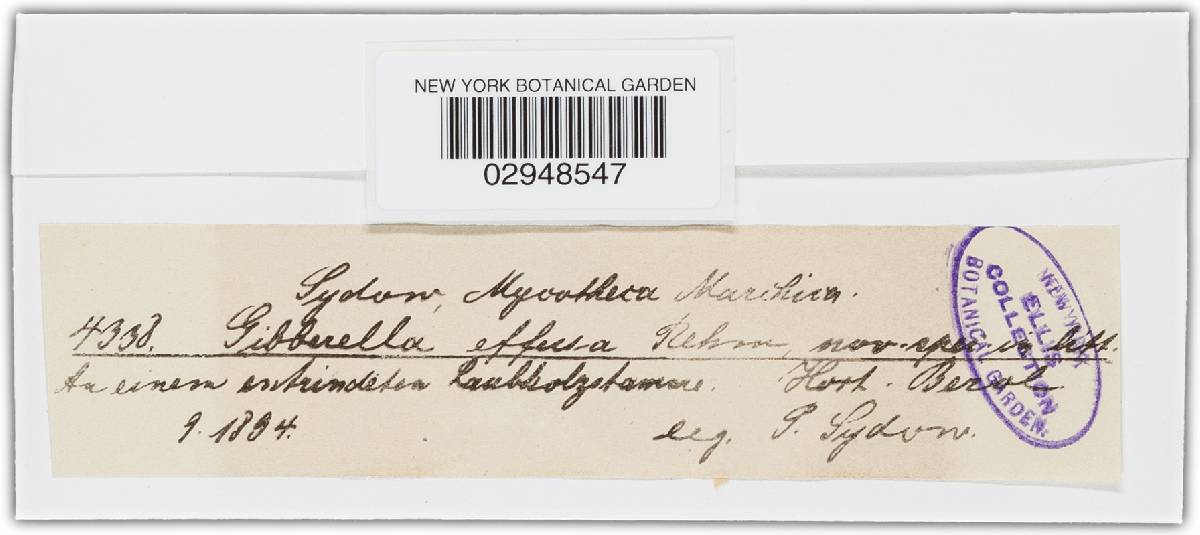 NEW YORK BOTANICAL GARDEN
02948547
Sydow, Mycotheca Marchica.
4338. Gibberella effusa Rehm, nov. spec. in litt.
An einem entrindeten Laubholzstamme. Hort. Berol.
9. 1894.
leg. P. Sydow.
NEW YORK
BOTANICAL GARDEN.
ELLIS
COLLECTION